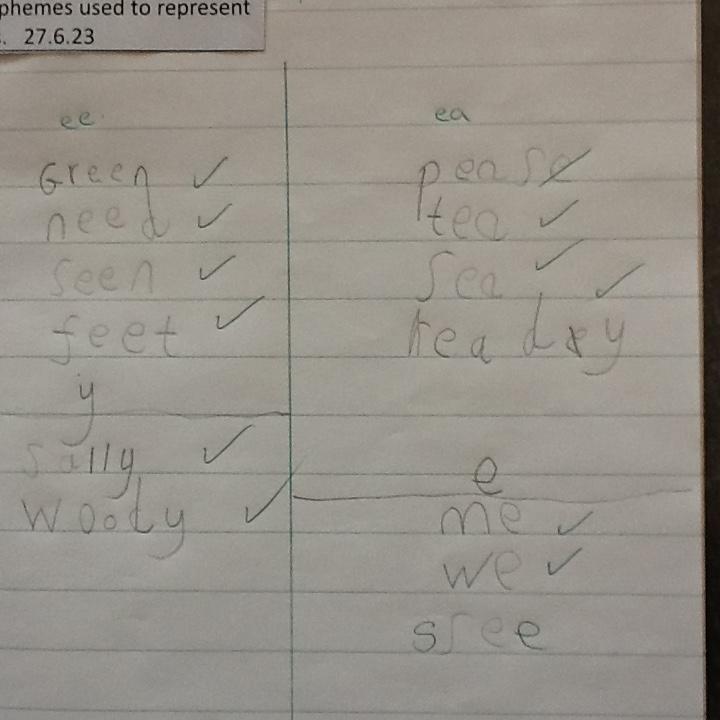 phemes used to represent
. 27.6.23
ee
Green
need
seen
feet
y
Sally
Woody
ea
pease
tea
sea
e
me
we